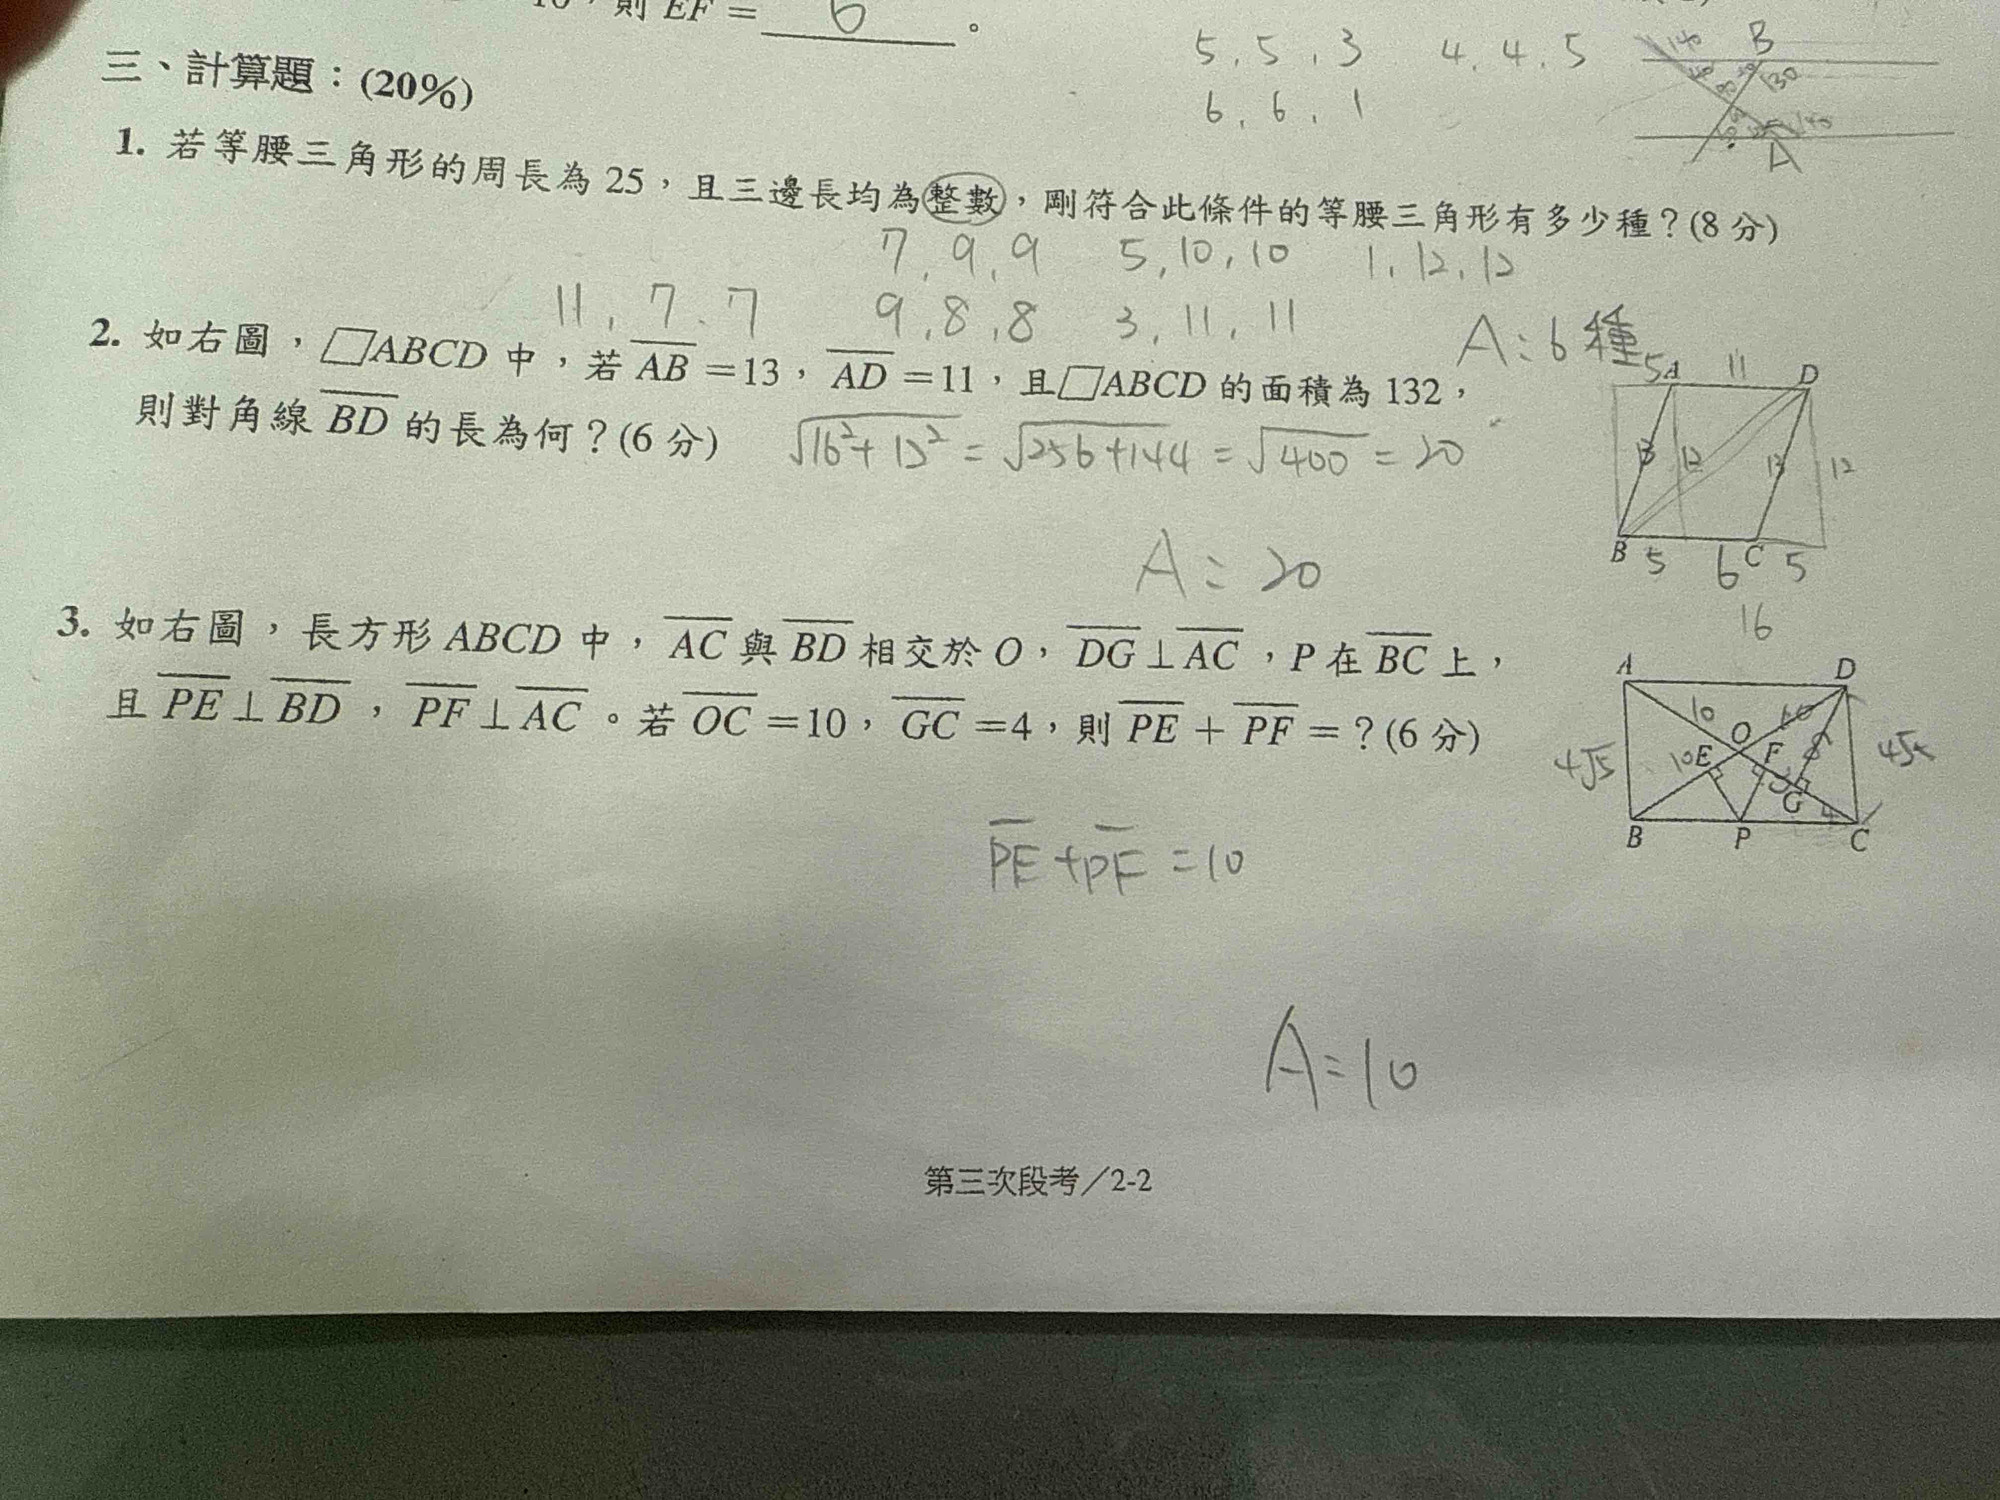 則 EF = 6 。
5, 5, 3 4, 4, 5
6, 6, 1
B
130
A
三、計算題：(20%)
1. 若等腰三角形的周長為 25，且三邊長均為整數，剛符合此條件的等腰三角形有多少種？(8 分)
7, 9, 9 5, 10, 10 1, 12, 12
11, 7, 7 9, 8, 8 3, 11, 11
A: 6 種
2. 如右圖，▱ABCD 中，若 AB =13，AD =11，且▱ABCD 的面積為 132，
則對角線 BD 的長為何？(6 分)
√16²+12² = √256+144 = √400 = 20
A = 20
5 A 11 D
13 12 13 12
B 5 6 C 5
16
3. 如右圖，長方形 ABCD 中，AC 與 BD 相交於 O，DG⊥AC，P 在 BC 上，
且 PE⊥BD，PF⊥AC。若 OC =10，GC =4，則 PE + PF = ？(6 分)
A D
10 O 10
4√5 10 E F 8 4√5
G 4
B P C
PE + PF = 10
A = 10
第三次段考／2-2